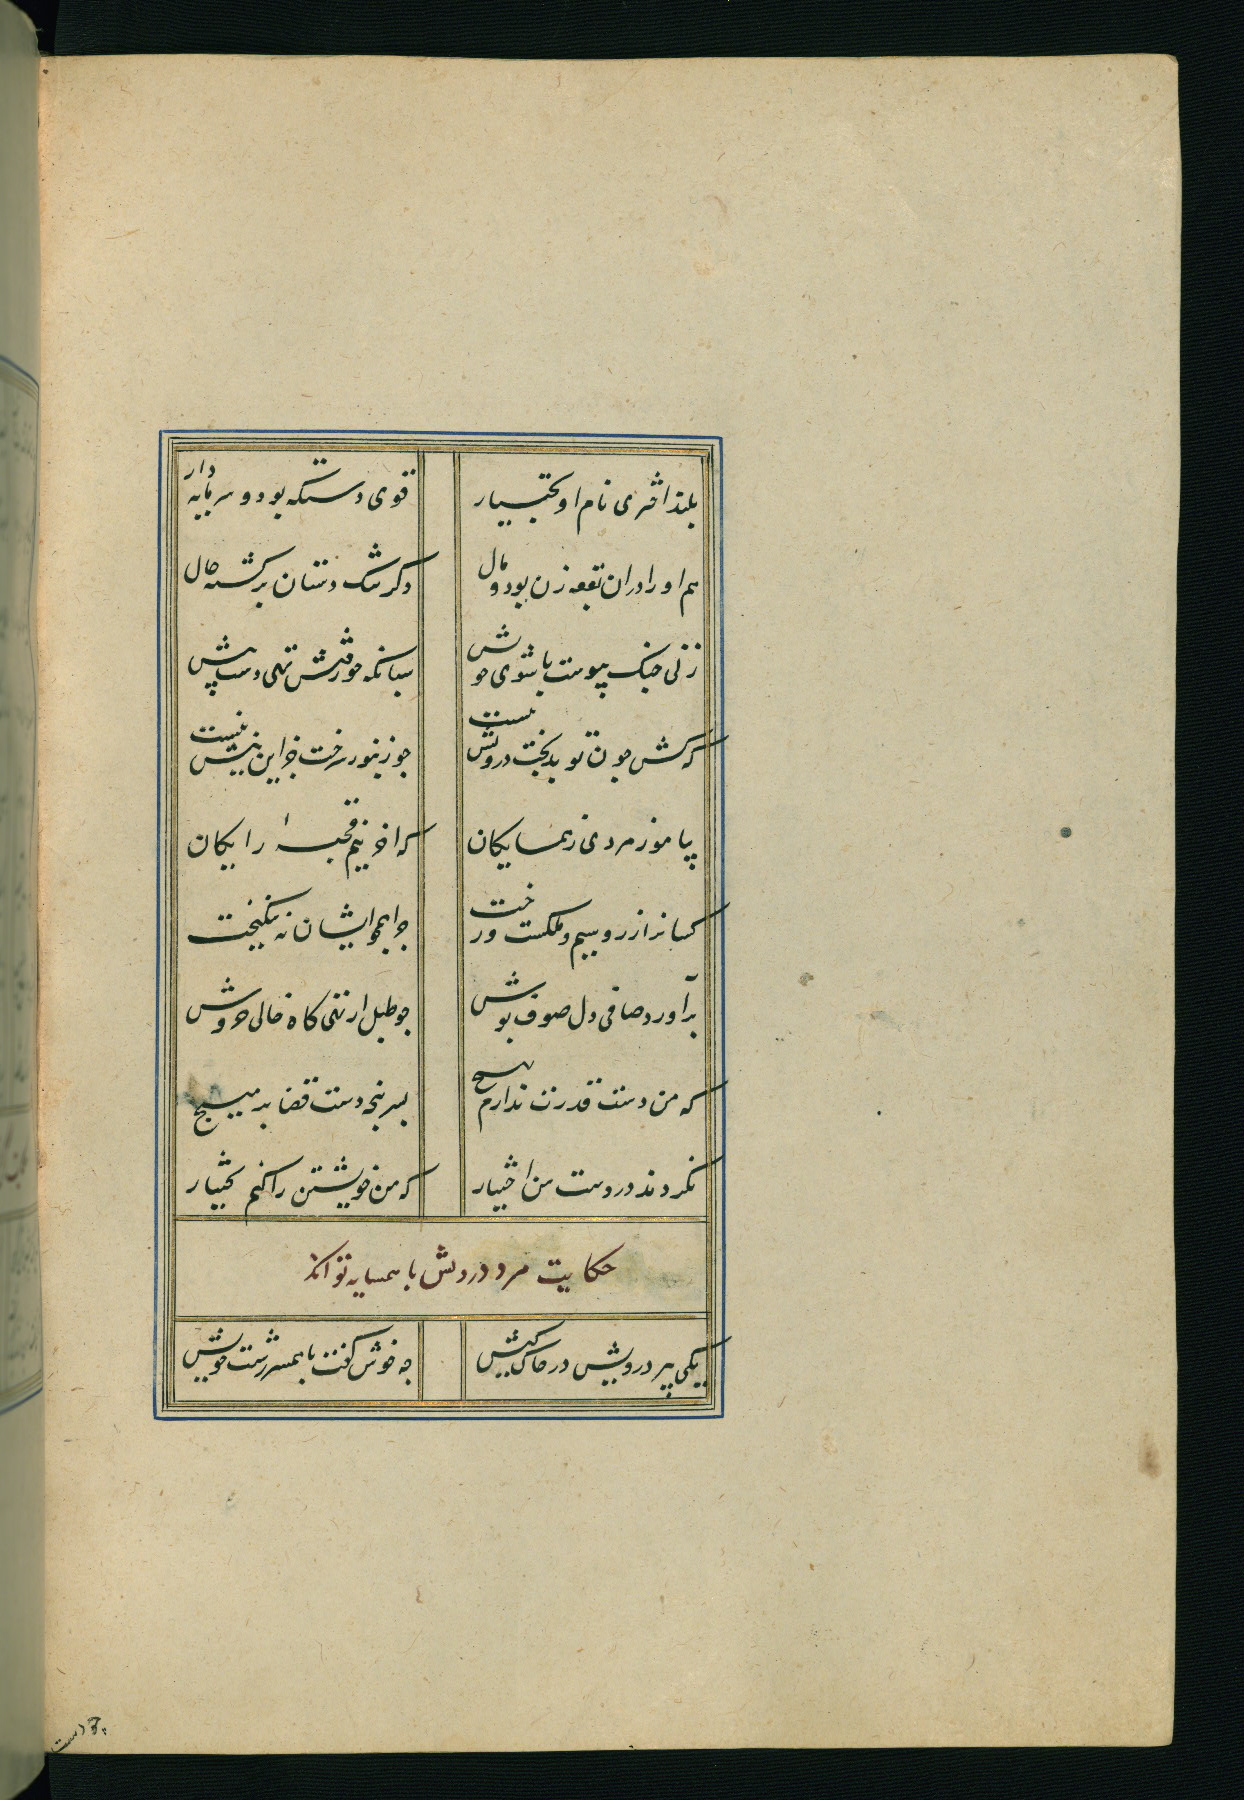 بلند اختری نام او بختیار قوی دستکه بود و سرمایه دار
هم او را دران بقعه زن بود و مال دکر تنک دستان برکشته حال
زنی جنک پیوست با شوی خویش شبانکه جو رفتش تهی دست پیش
که کس جون تو بدبخت درویش نیست جو زنبور سرخت جز این نیش نیست
بیاموز مردی ز همسایکان که اخر نیم قحبه رایکان
کسانرا زر و سیم و ملکست و رخت جرا همجو ایشان نه نیکبخت
برآورد صافی دل صوف بوش جو طبل از تهی کاه خالی خروش
که من دست قدرت ندارم بهیج بسربنجه دست قضا بر مبیج
نکردند در دست من اختیار که من خویشتن را کنم بختیار
حکایت مرد درویش با همسایه توانکر
یکی پیر درویش در خاک کیش جه خوش کفت با همسر زشت خویش